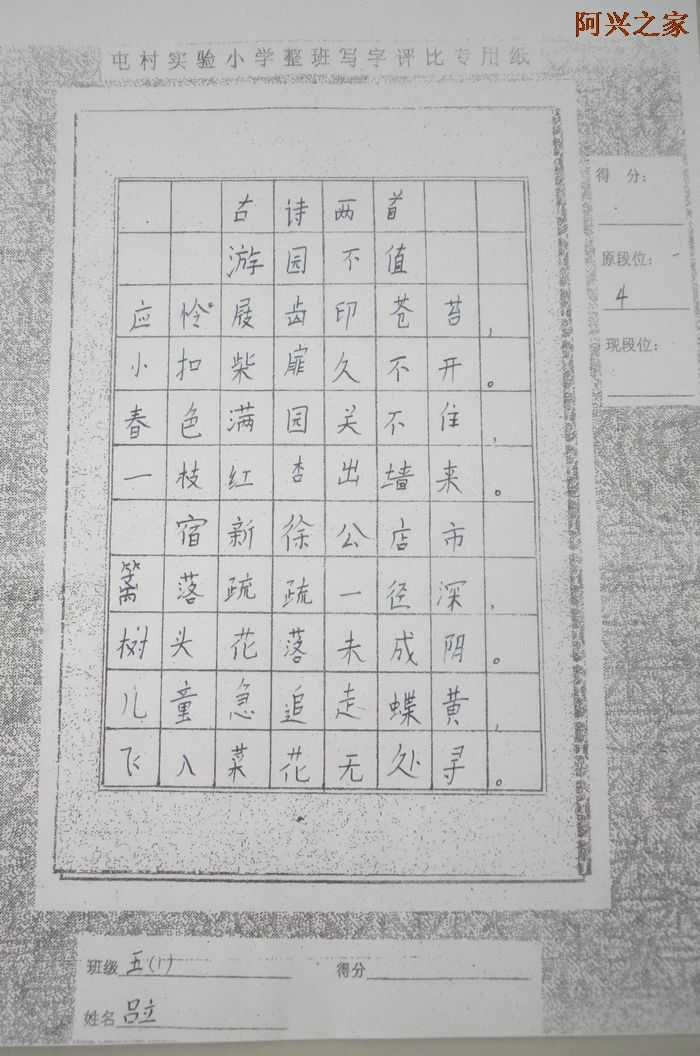 阿兴之家
屯村实验小学整班写字评比专用纸
得 分:
原段位:
4
现段位:
古诗两首
游园不值
应怜屐齿印苍苔,
小扣柴扉久不开。
春色满园关不住,
一枝红杏出墙来。
宿新徐公店市
篱落疏疏一径深,
树头花落未成阴。
儿童急追走蝶黄,
飞入菜花无处寻。
班级 五(1) 得分
姓名 吕立